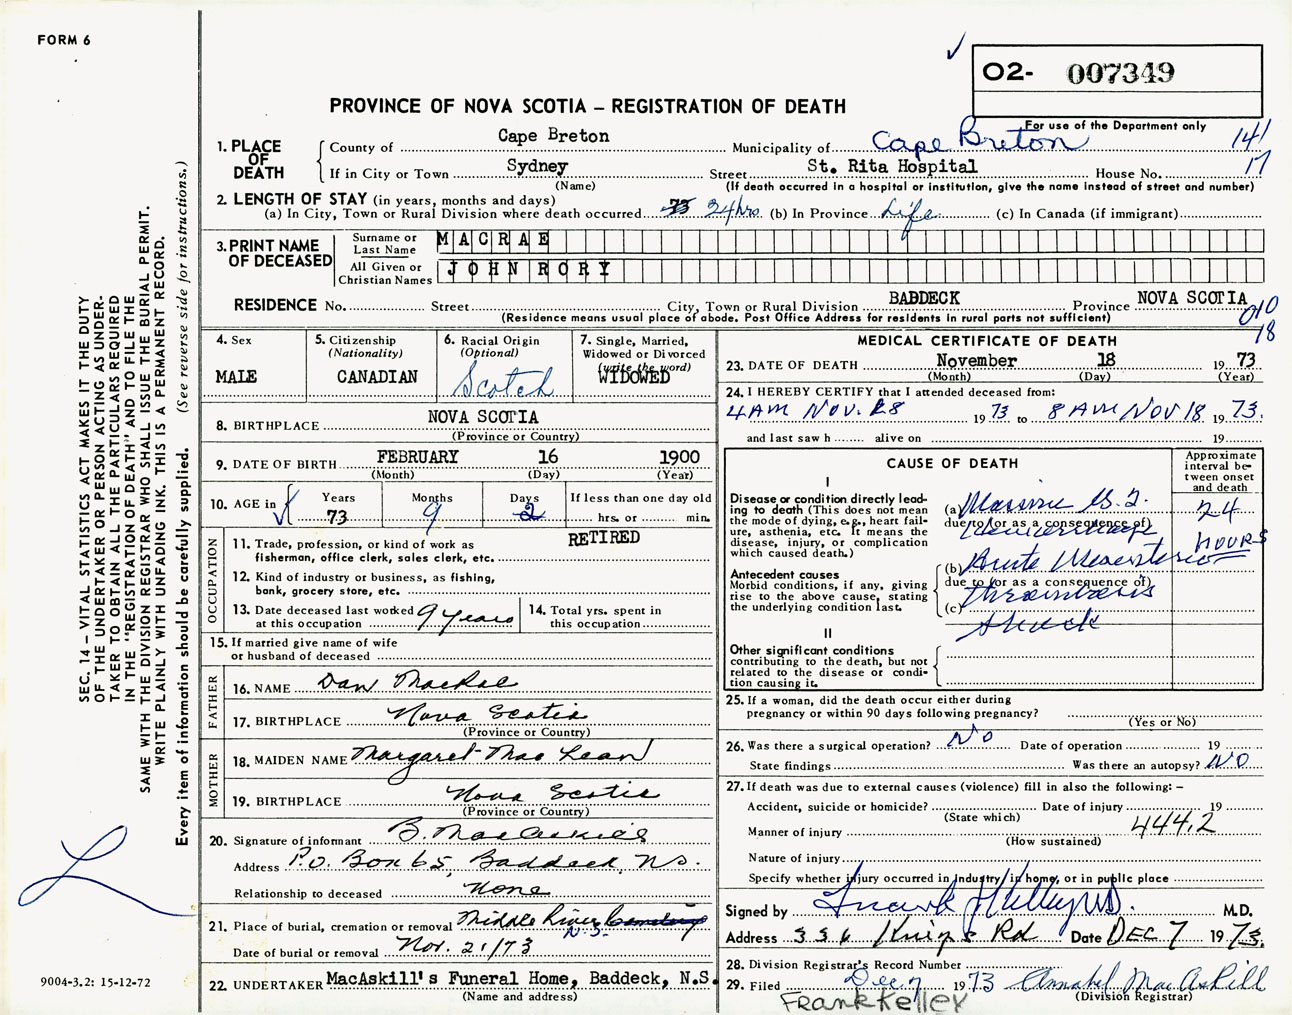 FORM 6
O2- 007349
PROVINCE OF NOVA SCOTIA – REGISTRATION OF DEATH
For use of the Department only
141
17
1. PLACE OF DEATH
County of Cape Breton Municipality of Cape Breton
If in City or Town Sydney Street St. Rita Hospital House No.
(Name) (If death occurred in a hospital or institution, give the name instead of street and number)
2. LENGTH OF STAY (in years, months and days)
(a) In City, Town or Rural Division where death occurred 73 24hrs (b) In Province Life (c) In Canada (if immigrant)
3. PRINT NAME OF DECEASED
Surname or Last Name MACRAE
All Given or Christian Names JOHN RORY
RESIDENCE No. Street City, Town or Rural Division BADDECK Province NOVA SCOTIA
(Residence means usual place of abode. Post Office Address for residents in rural parts not sufficient)
010
18
4. Sex
MALE
5. Citizenship
(Nationality)
CANADIAN
6. Racial Origin
(Optional)
Scotch
7. Single, Married,
Widowed or Divorced
(write the word)
WIDOWED
8. BIRTHPLACE NOVA SCOTIA
(Province or Country)
9. DATE OF BIRTH FEBRUARY 16 1900
(Month) (Day) (Year)
10. AGE in
Years
73
Months
9
Days
2
If less than one day old
hrs. or min.
OCCUPATION
11. Trade, profession, or kind of work as
fisherman, office clerk, sales clerk, etc. RETIRED
12. Kind of industry or business, as fishing,
bank, grocery store, etc.
13. Date deceased last worked
at this occupation 9 years
14. Total yrs. spent in
this occupation
15. If married give name of wife
or husband of deceased
FATHER
16. NAME Dan MacRae
17. BIRTHPLACE Nova Scotia
(Province or Country)
MOTHER
18. MAIDEN NAME Margaret Mac Lean
19. BIRTHPLACE Nova Scotia
(Province or Country)
20. Signature of informant B. MacAskill
Address P.O. Box 65, Baddeck, N.S.
Relationship to deceased None
21. Place of burial, cremation or removal Middle River Cemetery
N.S.
Date of burial or removal Nov. 21/73
22. UNDERTAKER MacAskill's Funeral Home, Baddeck, N.S.
(Name and address)
MEDICAL CERTIFICATE OF DEATH
23. DATE OF DEATH November 18 1973
(Month) (Day) (Year)
24. I HEREBY CERTIFY that I attended deceased from:
4AM NOV. 18 1973 to 8 AM NOV 18 1973.
and last saw h alive on 19
CAUSE OF DEATH
Approximate interval between onset and death
I
Disease or condition directly leading to death (This does not mean the mode of dying, e.g., heart failure, asthenia, etc. It means the disease, injury, or complication which caused death.)
(a) Massive G.I.
due to (or as a consequence of)
Hemorrhage
24
HOURS
Antecedent causes
Morbid conditions, if any, giving rise to the above cause, stating the underlying condition last.
(b) Acute Mesenteric
due to (or as a consequence of)
Thrombosis
(c)
Shock
II
Other significant conditions
contributing to the death, but not related to the disease or condition causing it.
25. If a woman, did the death occur either during
pregnancy or within 90 days following pregnancy?
(Yes or No)
26. Was there a surgical operation? No Date of operation 19
State findings Was there an autopsy? NO
27. If death was due to external causes (violence) fill in also the following: –
Accident, suicide or homicide? Date of injury 19
(State which)
444.2
Manner of injury
(How sustained)
Nature of injury
Specify whether injury occurred in industry, in home, or in public place
Signed by Frank J Kelley MD. M.D.
Address 336 Kings Rd Date DEC 7 1973.
28. Division Registrar's Record Number
29. Filed Dec 7 1973 Annabel MacAskill
(Division Registrar)
FRANK KELLEY
SEC. 14 – VITAL STATISTICS ACT MAKES IT THE DUTY
OF THE UNDERTAKER OR PERSON ACTING AS UNDER-
TAKER TO OBTAIN ALL THE PARTICULARS REQUIRED
IN THE "REGISTRATION OF DEATH" AND TO FILE THE
SAME WITH THE DIVISION REGISTRAR WHO SHALL ISSUE THE BURIAL PERMIT.
WRITE PLAINLY WITH UNFADING INK. THIS IS A PERMANENT RECORD.
Every item of information should be carefully supplied. (See reverse side for instructions.)
9004-3.2: 15-12-72